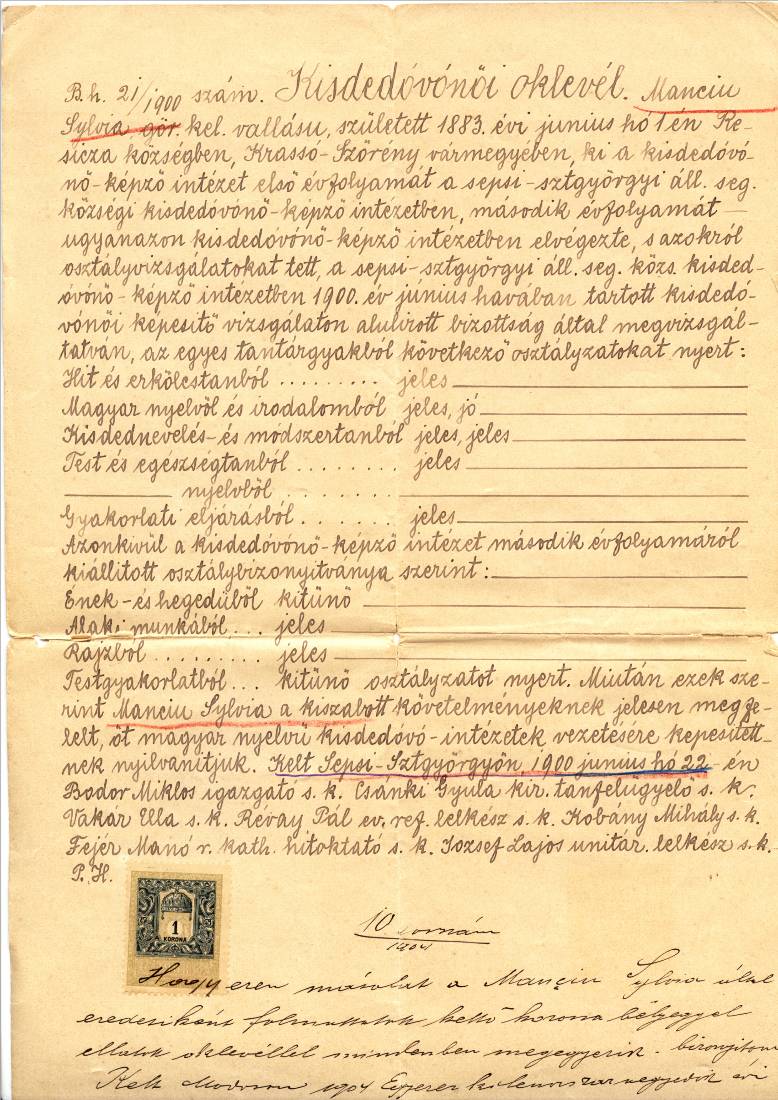 B. h. 21/1900 szám. Kisdedóvónői oklevél. Manciu
Sylvia gör. kel. vallásu, született 1883. évi junius hó 1 én Re-
sicza községben, Krassó-Szörény vármegyében, ki a kisdedóvó-
nő-képző intézet első évfolyamát a sepsi-sztgyörgyi áll. seg.
községi kisdedóvónő-képző intézetben, második évfolyamát —
ugyanazon kisdedóvónő-képző intézetben elvégezte, s azokról
osztályvizsgálatokat tett, a sepsi-sztgyörgyi áll. seg. közs. kisded-
óvónő-képző intézetben 1900. év június havában tartott kisdedó-
vónői képesítő vizsgálaton alulirott bizottság által megvizsgál-
tatván, az egyes tantárgyakból következő osztályzatokat nyert:
Hit és erkölcstanból ......... jeles
Magyar nyelvből és irodalomból jeles, jó
Kisdednevelés- és módszertanból jeles, jeles
Test és egészségtanból ........ jeles
nyelvből ........
Gyakorlati eljárásból ....... jeles
Azonkivül a kisdedóvónő-képző intézet második évfolyamáról
kiállitott osztálybizonyitványa szerint:
Ének- és hegedűből kitünő
Alaki munkából... jeles
Rajzból ......... jeles
Testgyakorlatból... kitünő osztályzatot nyert. Miután ezek sze-
rint Manciu Sylvia a kiszabott követelményeknek jelesen megfe-
lelt, őt magyar nyelvű kisdedóvó-intézetek vezetésére képesített-
nek nyilvánitjuk. Kelt Sepsi-Sztgyörgyön, 1900 junius hó 22-én
Bodor Miklos igazgató s. k. Csánki Gyula kir. tanfelügyelő s. k.
Vakár Ella s. k. Révay Pál ev. ref. lelkész s. k. Kobány Mihály s. k.
Fejér Manó r. kath. hitoktató s. k. Jozsef Lajos unitár. lelkész s. k.
P. H.
1
KORONA
10
1904
Hogy ezen másolat a Manciu Sylvia által
eredetiként felmutatott kettő korona bélyeggel
ellátott oklevéllel mindenben megegyezik. bizonyitom
Kelt 1904 Egyezer kilencszáz negyedik évi